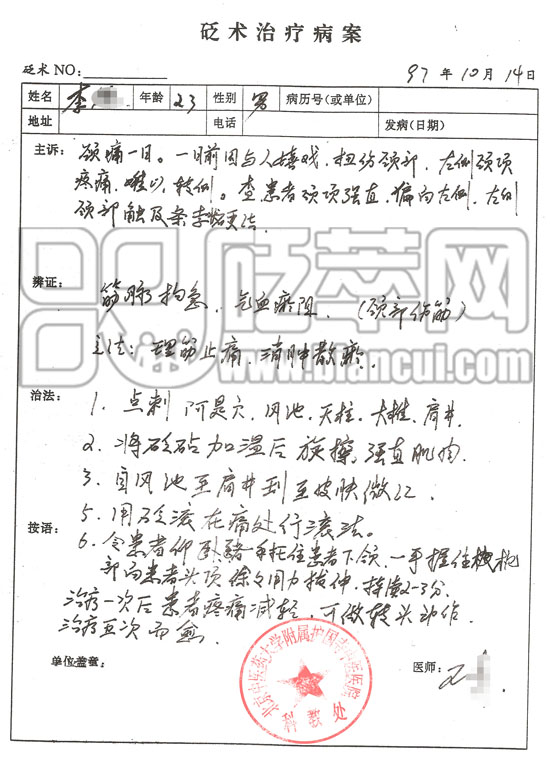 砭术治疗病案
砭术NO:
97年10月14日
姓名 李 年龄 23 性别 男 病历号(或单位)
地址 电话 发病(日期)
主诉: 颈痛一日。一日前因与人嬉戏,扭伤颈部,左侧颈项
疼痛,难以转侧。查患者颈项强直,偏向左侧,左侧
颈部触及条索状
砭萃网
www.biancui.com
辨证: 筋脉拘急,气血瘀阻。(颈部伤筋)
立法:理筋止痛,消肿散瘀。
治法: 1. 点刺 阿是穴、风池、天柱、大椎、肩井
2. 将砭砧加温后 旋擦 强直肌肉.
3. 自风池至肩井刮至皮肤微红.
5. 用砭滚在痛处行滚法。
按语: 6. 令患者仰卧 一手托住患者下颌,一手握住
部向患者头顶徐徐用力拔伸,持续2-3分.
治疗一次后患者疼痛减轻,可做转头动作.
治疗五次而愈.
单位盖章:
北京中医药大学附属护国寺中医医院
科教处
医师: